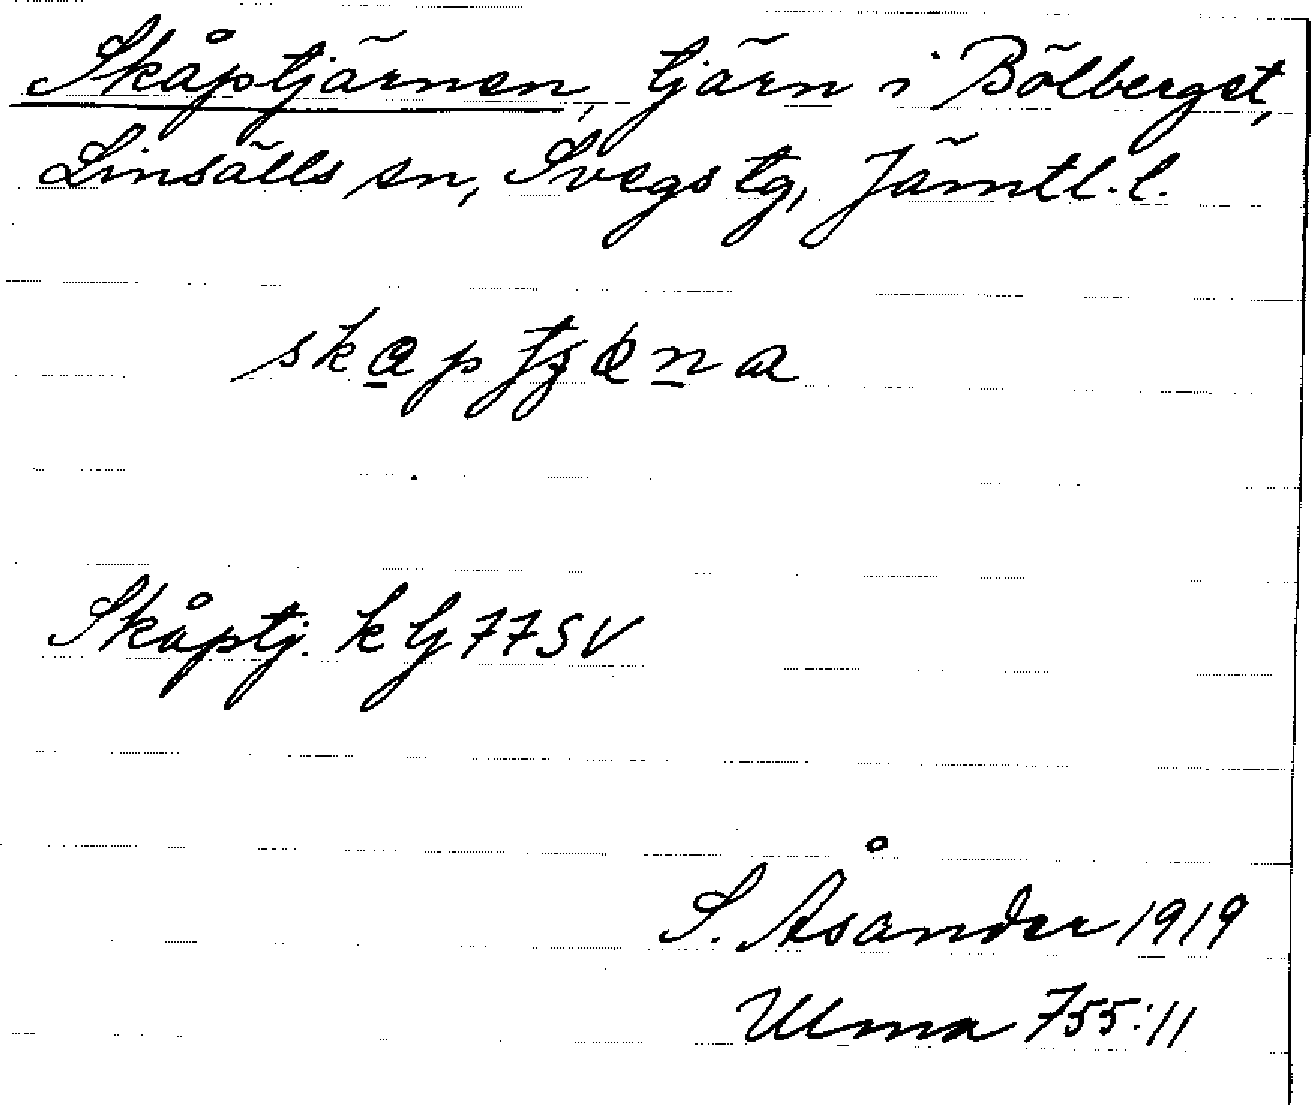 Skåptjärnen, tjärn i Bölberget,
Linsälls sn, Svegs tg, Jämtl. l.
Skåptj. k G 77 SV
S. Åsander 1919
Ulma 755:11